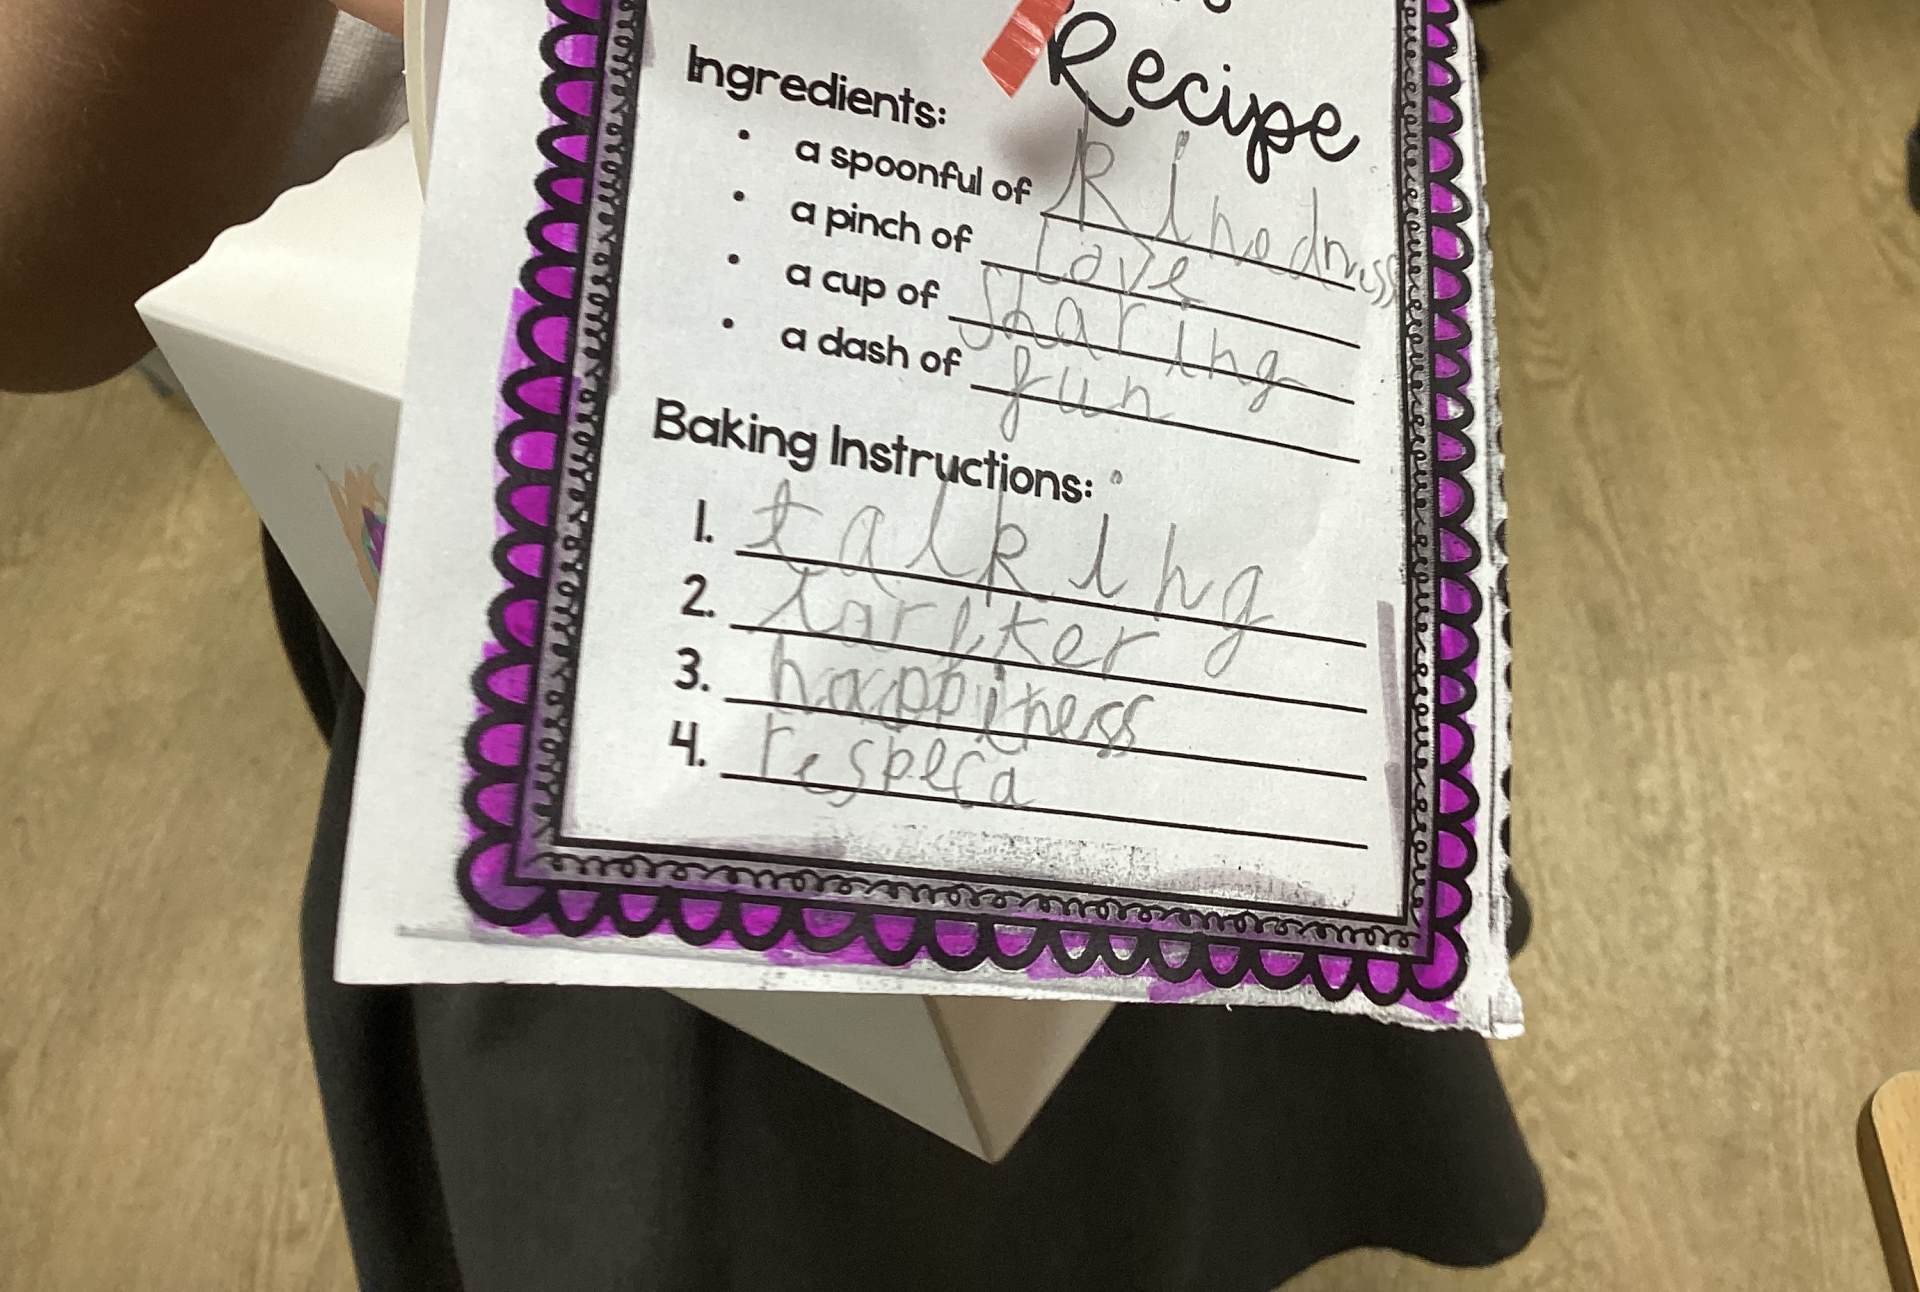 Recipe
Ingredients:
• a spoonful of Kinedness
• a pinch of love
• a cup of Sharing
• a dash of fun
Baking Instructions:
1. talking
2.
3. happiness
4. respeca